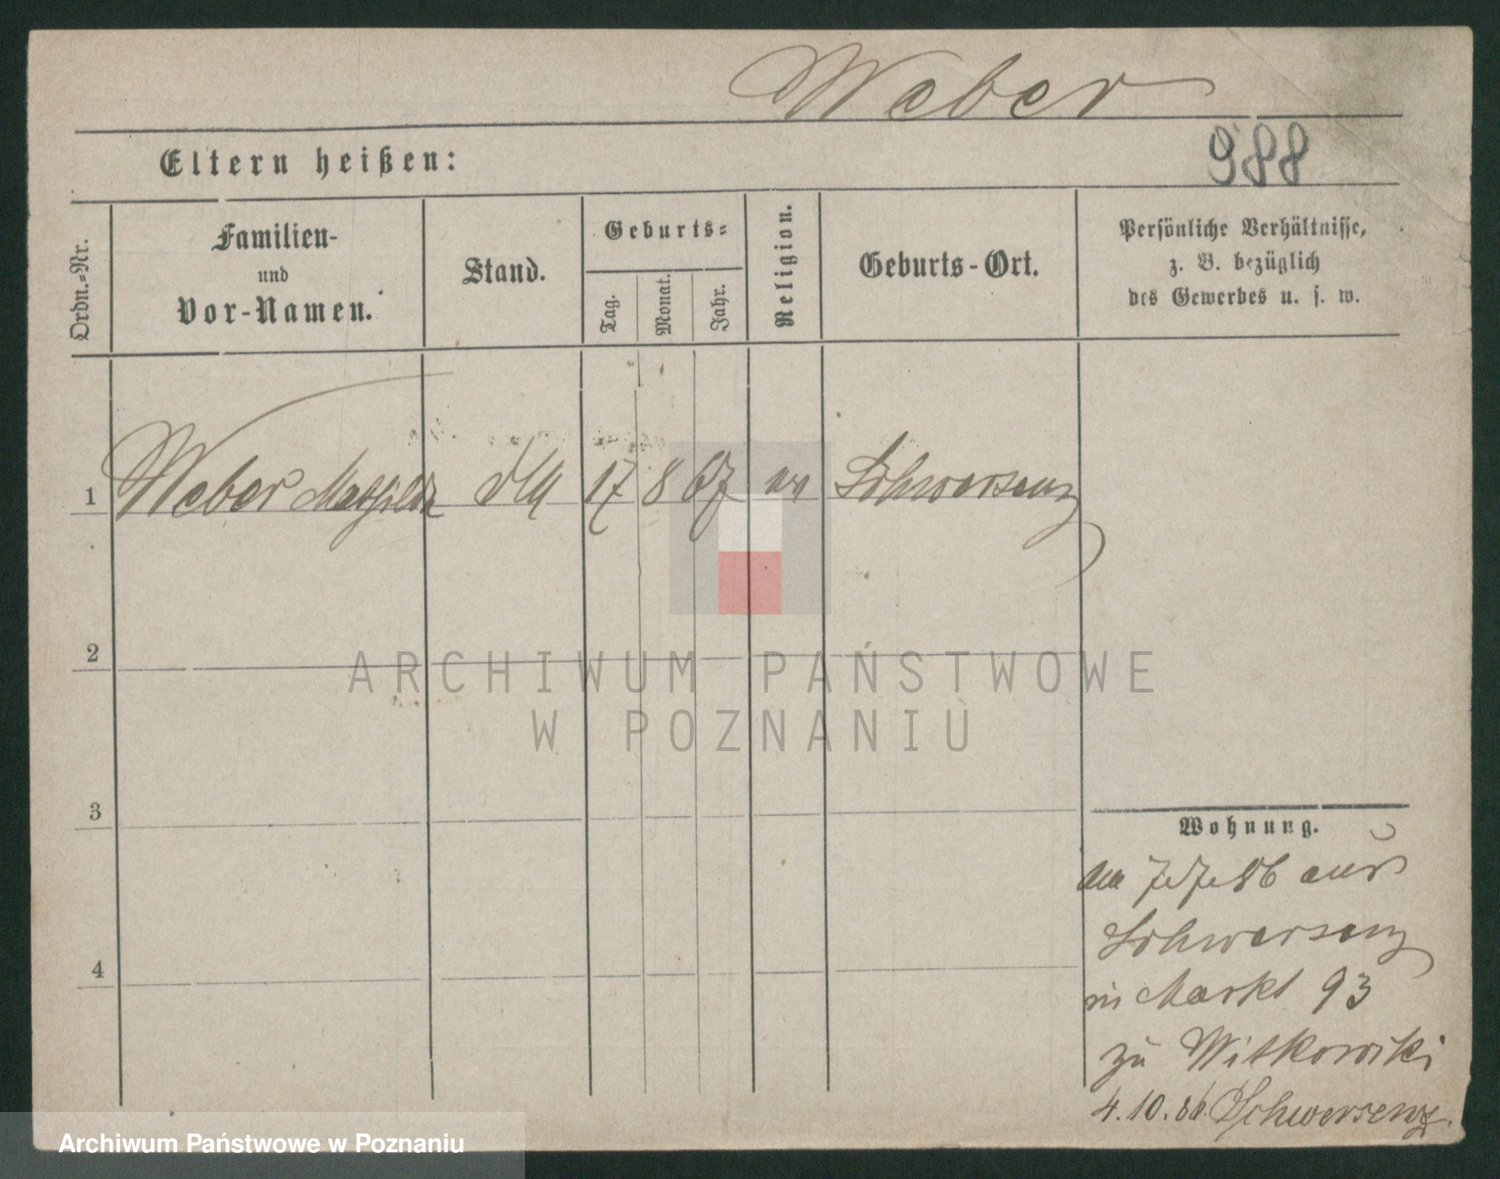 Weber
Eltern heißen:
988
Ordn.-Nr.
Familien-
und
Vor-Namen.
Stand.
Geburts-
Tag.
Monat.
Jahr.
Religion.
Geburts-Ort.
Persönliche Verhältnisse,
z. B. bezüglich
des Gewerbes u. s. w.
1 Weber Mathilde 17 8 67 ev Schwersenz
2
3
4
ARCHIWUM PAŃSTWOWE
W POZNANIU
Wohnung.
86 aus
Schwersenz
in Markt 93
zu Witkowski
4.10.86. Schwersenz.
Archiwum Państwowe w Poznaniu